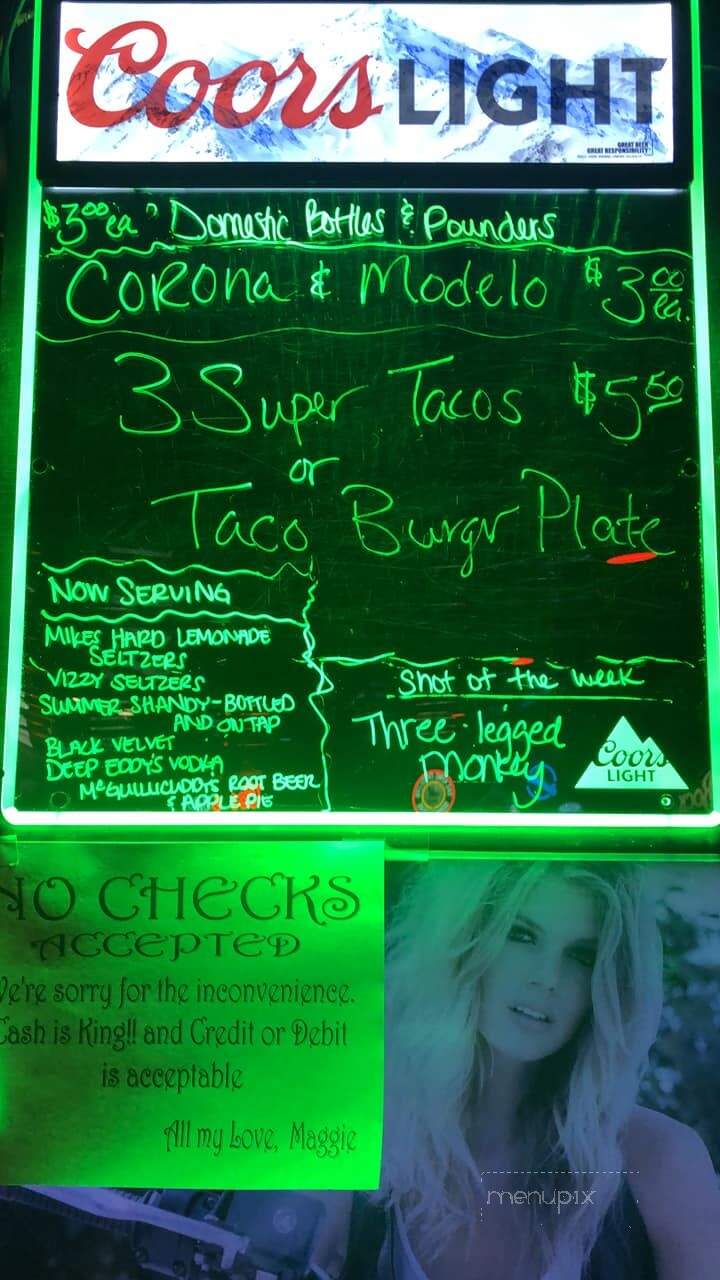 Coors LIGHT
GREAT BEER
GREAT RESPONSIBILITY
$3.00 ea Domestic Bottles & Pounders
Corona & Modelo $3.00 ea.
3 Super Tacos $5.50
or
Taco Burgr Plate
NOW SERVING
MIKES HARD LEMONADE
SELTZERS
VIZZY SELTZERS
SUMMER SHANDY-BOTTLED
AND ON TAP
BLACK VELVET
DEEP EDDY'S VODKA
McGUILLICUDDYS ROOT BEER
& APPLE PIE
Shot of the week
Three-legged
monkey
Coors
LIGHT
NO CHECKS
ACCEPTED
We're sorry for the inconvenience.
Cash is King!! and Credit or Debit
is acceptable
All my Love, Maggie
menupix